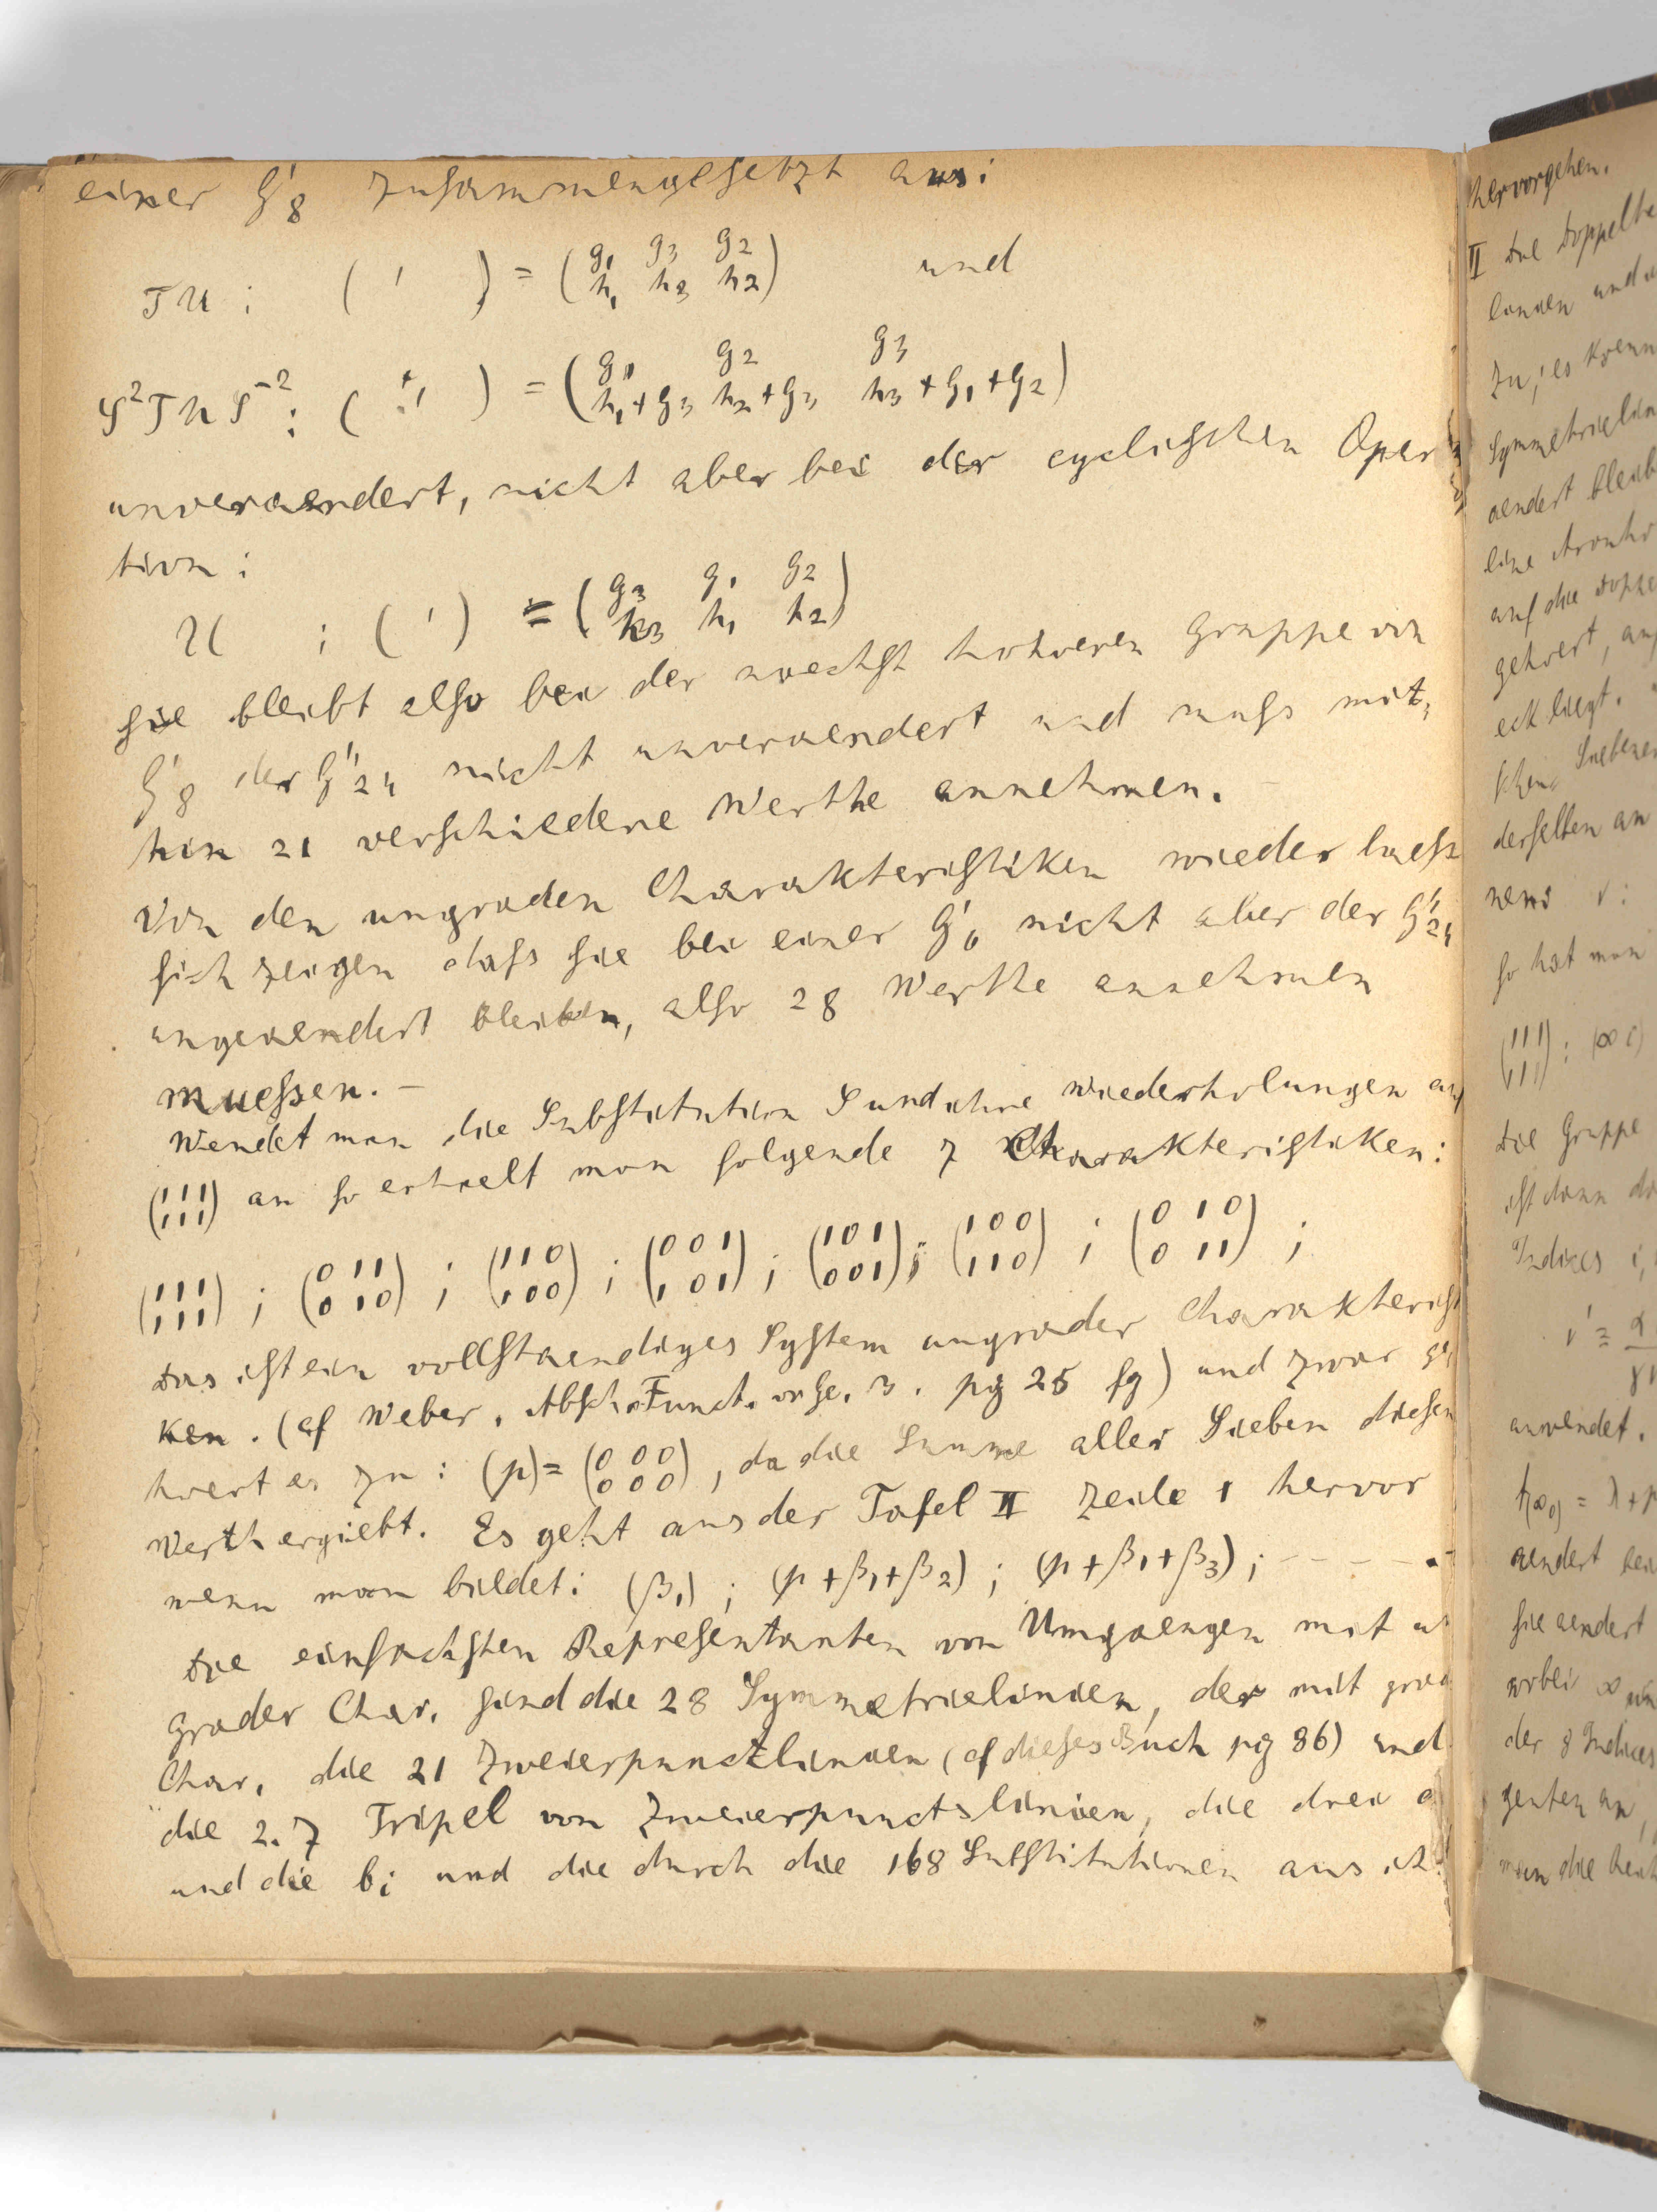 einer G'8 zusammengesetzt aus:
TU : ( ' ) = (g1 g3 g2 / h1 h3 h2) und
S²TUS⁻² : ( '' ) = (g1 g2 g3 / h1+g3 h2+g3 h3+g1+g2)
unveraendert, nicht aber bei der cyclischen Oper
tion:
U : ( ' ) = (g3 g1 g2 / h3 h1 h2)
sie bleibt also bei der naechst hoheren Gruppe von
G'8 der G'24 nicht unveraendert und muss mit-
hin 21 verschiedene Werthe annehmen. –
Von den ungraden Charakteristiken wieder laess
sich zeigen dass sie bei einer G'6 nicht aber der G'24
ungeaendert bleiben, also 28 Werthe annehmen
muessen. –
Wendet man die Substitution S und ihre Wiederholungen auf
(111 / 111) an so erhaelt man folgende 7 Charakteristiken:
(111 / 111) ; (011 / 010) ; (110 / 100) ; (001 / 101) ; (101 / 001) ; (100 / 110) ; (010 / 011) ;
Das ist ein vollstaendiges System ungrader Charakterist
ken. (cf Weber, AbSch. Funct. v. Ge. 3. pg 25 fg) und zwar ge
hoert es zu: (p) = (000 / 000), da die Summe aller Sieben diesen
Werth ergiebt. Es geht aus der Tafel II Zeile 1 hervor
wenn man bildet: (β1) ; (p+β1+β2) ; (p+β1+β3) ; – – – – –
Die einfachsten Repraesentanten von Umgaengen mit u
grader Char. sind die 28 Symmetrielinien, der mit grad
Char. die 21 Zweierpunctlinien (cf dieses Buch pg 86) und
die 2.7 Tripel von Zweierpunctslinien, die drei a
und die bi und die durch die 168 Substitutionen aus ih
hervorgehen.
II Die Doppelta
linien und
zu; es koenn
Symmetrielin
aendert bleib
eine
auf die Doppe
gehoert,
eck liegt.
Siebener
derselben an
nens v:
so hat man
(111 / 111) : (∞ i)
Die Gruppe
ist dann
Indices i,
v' =
anwendet.
aendert
sie aendert
wobei ∞
der 8 Indices
genten an,
man die